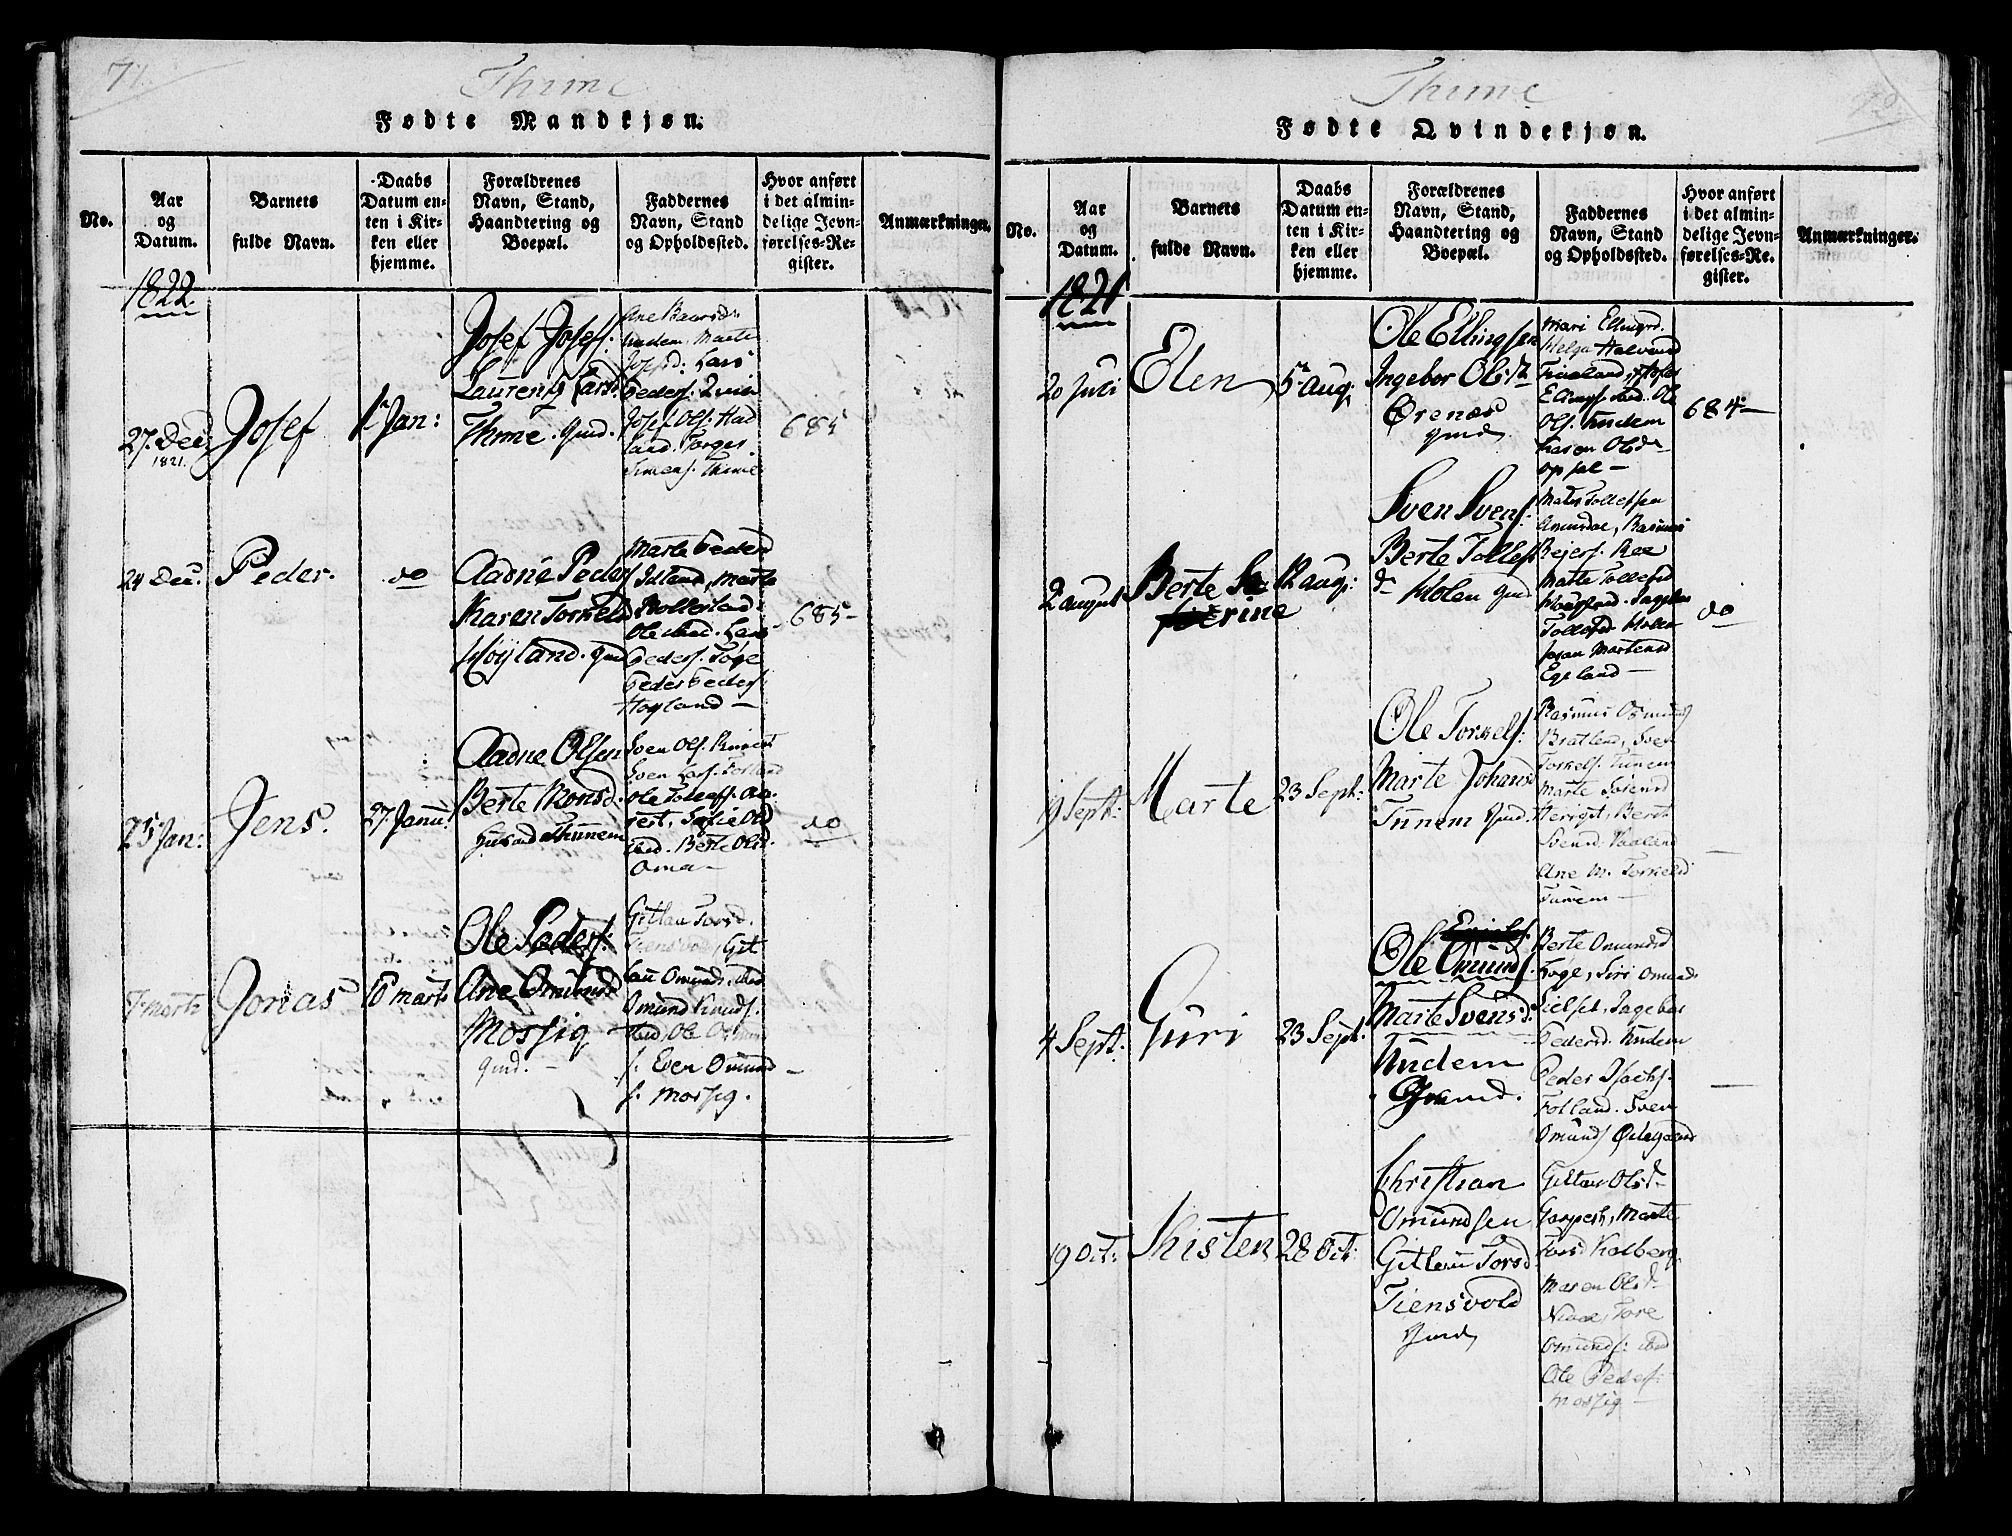 71.
Thime
Fødte Mandkjøn.
No.
Aar
og
Datum.
Barnets
fulde Navn.
Daabs
Datum en-
ten i Kir-
ken eller
hjemme.
Forældrenes
Navn, Stand,
Haandtering og
Boepæl.
Faddernes
Navn, Stand
og Opholdssted.
Hvor anført
i det almin-
delige Jevn-
førelses-Re-
gister.
Anmærkninger.
1822
27. Dec.
1821.
Josef
1 Jan:
Josef Josefs:
Laurents Larsd.
Thime. Gmd.
Josefd: Lars
Peders.
Josef Ols.
land. Torges
Simens. Thime
685
24 Dec.
Peder.
do
Aadne Peders
Karen Torkelsd
Høyland. Gmd
Marte Pedersd
Idland, Marte
Ole ibid. Lars
Peders. Toge
Peder Peders:
Høyland —
685-
25 Jan:
Jens.
27. Janu:
Aadne Olsen
Berte Monsd.
Thunem
Sven Ols.
Sven Lars.
Ole Tollefs.
ibid. Berte Olsd.
Oma —
do
7 Marts
Jonas
10 Marts
Ole Peders:
Ane Omundsd
Mossig
Gmd. —
Gitlau Torsd.
Tiensvold, Git
lau Omunds, ibid
Omund Knuds.
ibid Ole Omun
s. Even Omund —
s. Mossig.
Thime
Fødte Qvindekjøn.
No.
Aar
og
Datum.
Barnets
fulde Navn.
Daabs
Datum en-
ten i Kir-
ken eller
hjemme.
Forældrenes
Navn, Stand,
Haandtering og
Boepæl.
Faddernes
Navn, Stand
og Opholdssted.
Hvor anført
i det almin-
delige Jevn-
førelses-Re-
gister.
Anmærkninger.
1821
20 Juli
Elen
5 Aug:
Ole Ellingsen
Ingebor Olsd
Ørenæs
Gmd
Mari Ellingsd.
Helga Halvorsd
Ellings. ibid. Ole
Ols. Undem
Karen Olsd
Opsal —
684-
2 August
Berte Se
verine
12 Aug:
Sven Svens:
Berte Tollefs
d Holen Gmd
Mates Tollefsen
Aniesdal, Rasmus
Rejers. Ree
Marte Tollefsd
Tollefsd Holen
Joran Mortensd
Egeland —
do
19 Septb:
Marte
23 Sept:
Ole Torkels:
Marte Johans
Tunem Gmd.
Rasmus Osmunds
Bratland, Sven
Torkels. Tunem
Marte Sørensd
Herriget, Berte
Svensd. Vaaland
Ane M. Torkelsd
Tunem —
—
4 Sept:
Guri
23 Sept.
Ole Omunds.
Marte Svensd:
Undem
Gmd.
Berte Omundsd
Toge, Siri Omunds
Lielset, Ingebor
Pedersd. Undem
Peder Isachs.
Folland. Sven
Omunds Ødegaard
—
19 Oct:
Thisten
28 Oct:
Christian
Omundsen
Gitlau Torsd
Tiensvold
Gmd
Gitlau Olsd
Garpest, Marte
Torsd Kalberg
Maren Olsd
Niaa, Tore
Omunds: ibid
Ole Peders:
Mossig —